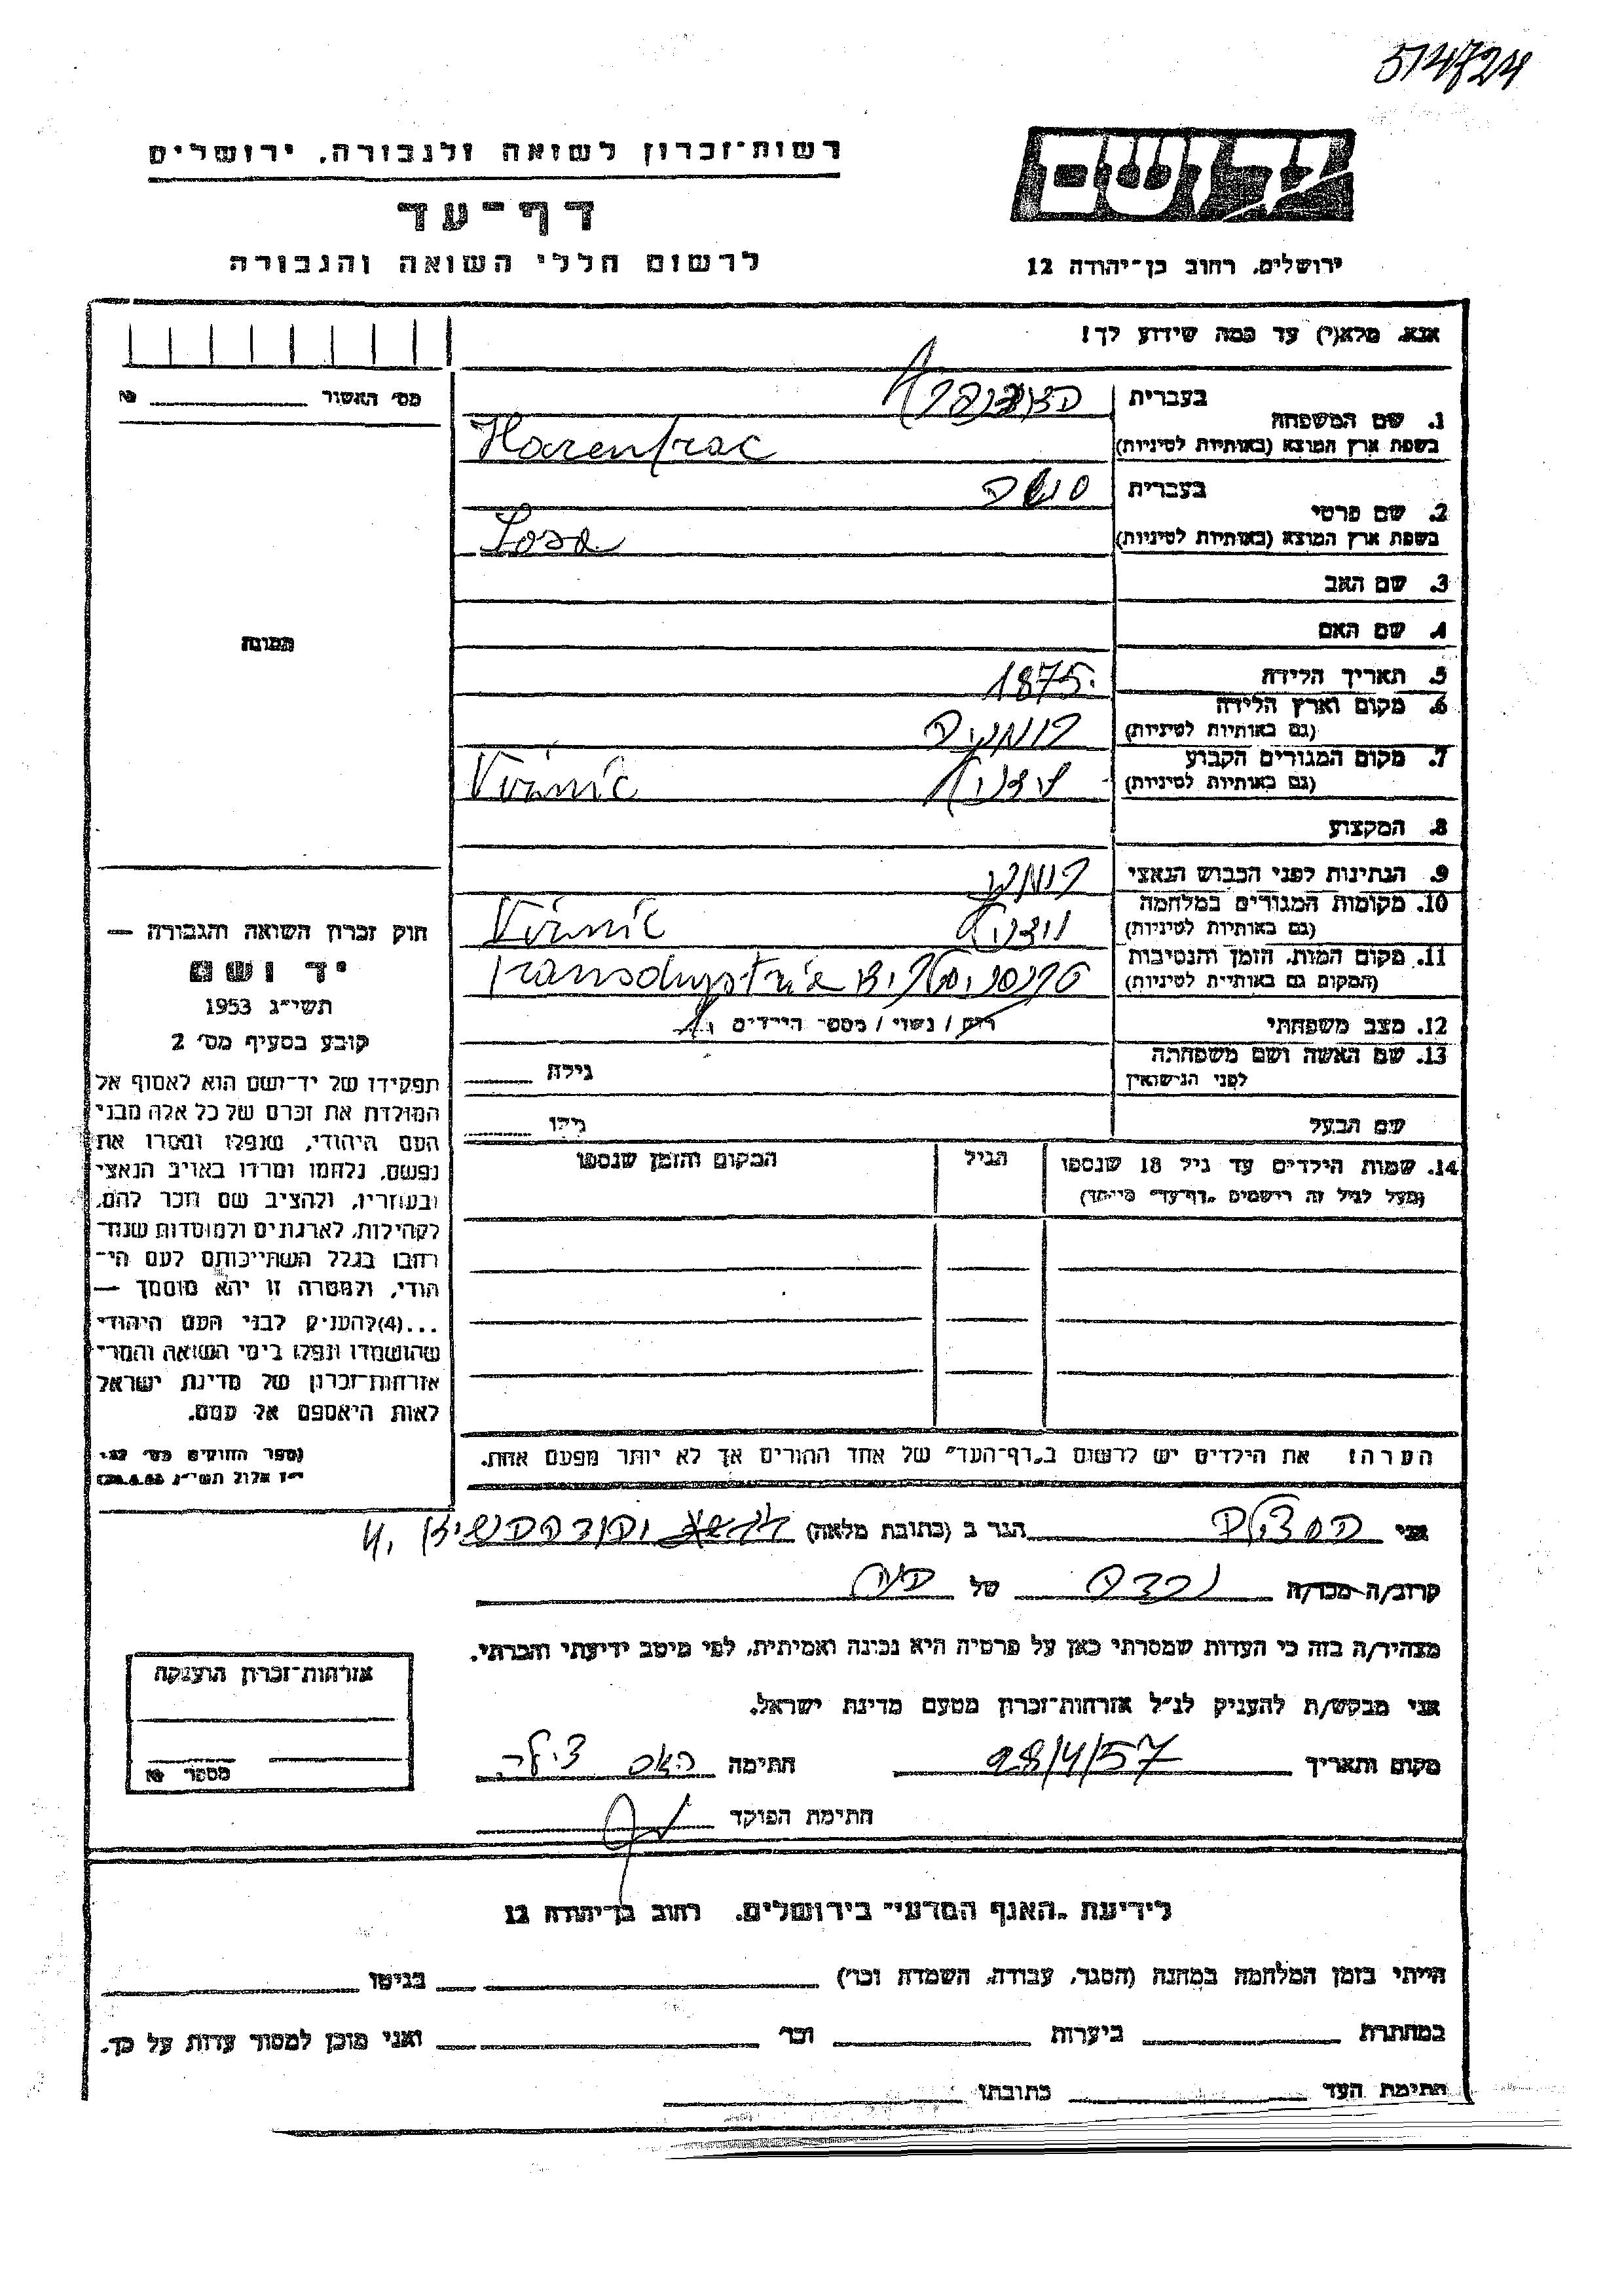 514724
רשות־זכרון לשואה ולגבורה. ירושלים
דף־עד
לרשום חללי השואה והגבורה
יד ושם
ירושלים. רחוב בן־יהודה 12
אנא. מלא(י) עד כמה שידוע לך!
מס׳ האשור № 
1. שם המשפחה בעברית
בשפת ארץ המוצא (באותיות לטיניות) Harenfrac
2. שם פרטי בעברית
בשפת ארץ המוצא (באותיות לטיניות)
3. שם האב
4. שם האם
תמונה
5. תאריך הלידה 1875
6. מקום וארץ הלידה רומניה
(גם באותיות לטיניות)
7. מקום המגורים הקבוע
(גם באותיות לטיניות) Viznic
8. המקצוע
9. הנתינות לפני הכבוש הנאצי
10. מקומות המגורים במלחמה
(גם באותיות לטיניות) Viznic
11. מקום המות. הזמן והנסיבות
(המקום גם באותיות לטיניות) טרנסניסטריה
12. מצב משפחתי רווק / נשוי / מספר הילדים
13. שם האשה ושם משפחתה גילה
לפני הנישואין
שם הבעל גילו
14. שמות הילדים עד גיל 18 שנספו הגיל המקום והזמן שנספו
(מעל לגיל זה רישמים „דף־עד״ מיוחד)
הערה! את הילדים יש לרשום ב„דף־העד״ של אחד ההורים אך לא יותר מפעם אחת.
חוק זכרון השואה והגבורה —
יד ושם
תשי״ג 1953
קובע בסעיף מס׳ 2
תפקידו של יד־ושם הוא לאסוף אל
המולדת את זכרם של כל אלה מבני
העם היהודי, שנפלו ומסרו את
נפשם, נלחמו ומרדו באויב הנאצי
ובעוזריו, ולהציב שם וזכר להם,
לקהילות, לארגונים ולמוסדות שנח־
רבו בגלל השתייכותם לעם הי־
הודי, ולמטרה זו יהא מוסמך —
...(4) להעניק לבני העם היהודי
שהושמדו ונפלו בימי השואה והמרי
אזרחות־זכרון של מדינת ישראל
לאות היאספם אל עמם.
(ספר החוקים מס׳ 132.
י״ז אלול תשי״ג 28.8.53)
אני הגר ב (כתובת מלאה)
קרוב/ה מכר/ה נכדה של
מצהיר/ה בזה כי העדות שמסרתי כאן על פרטיה היא נכונה ואמיתית, לפי מיטב ידיעתי והכרתי.
אני מבקש/ת להעניק לנ״ל אזרחות־זכרון מטעם מדינת ישראל.
מקום ותאריך 28/4/57 חתימה
חתימת הפוקד
אזרחות־זכרון הוענקה
מספר №
לידיעת „האגף המדעי״ בירושלים. רחוב בן־יהודה 12
הייתי בזמן המלחמה במחנה (הסגר, עבודה, השמדה וכו׳) בגיטו
במחתרת ביערות וכו׳ ואני מוכן למסור עדות על כך.
חתימת העד כתובתו